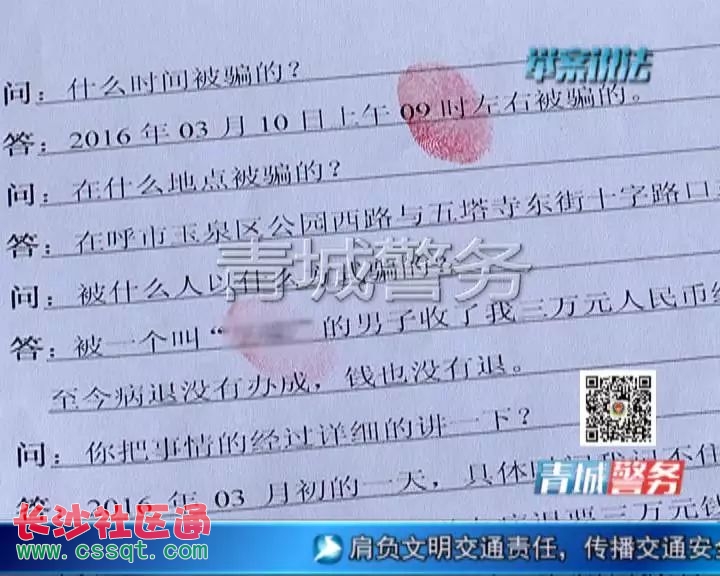 举案说法
问：什么时间被骗的？
答：2016 年 03 月 10 日上午 09 时左右被骗的。
问：在什么地点被骗的？
答：在呼市玉泉区公园西路与五塔寺东街十字路口
青城警务
问：被什么人以什么 骗的？
答：被一个叫“ 的男子收了我三万元人民币给
至今病退没有办成，钱也没有退。
问：你把事情的经过详细的讲一下？
答：2016 年 03 月初的一天，具体时间我记不住
病退要三万元钱
青城警务
长沙社区通
www.cssqt.com
肩负文明交通责任，传播交通安全